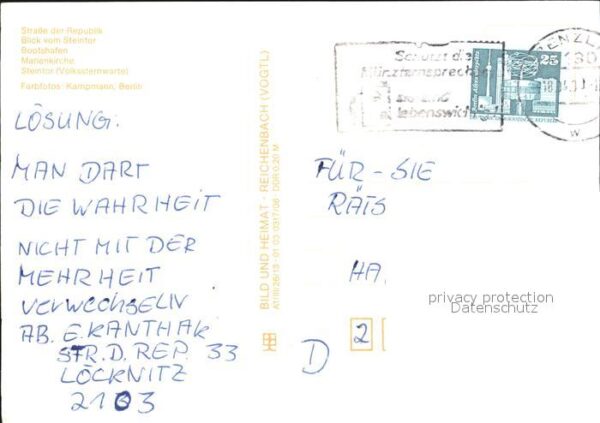 Straße der Republik
Blick vom Steintor
Bootshafen
Marienkirche
Steintor (Volkssternwarte)
Farbfotos: Kampmann, Berlin
LÖSUNG:
MAN DARF
DIE WAHRHEIT
NICHT MIT DER
MEHRHEIT
VERWECHSELN
AB. E. KANTHAK
STR. D. REP. 33
LÖCKNITZ
2103
BILD UND HEIMAT · REICHENBACH (VOGTL)
A1/III/26/13 · 01 03 0317/06 · DDR 0,20 M
Schützt die
Münzfernsprecher
sie sind
lebenswichtig!
25
PRENZLAU
FÜR-SIE
RÄTS
HA.
2
D
privacy protection
Datenschutz